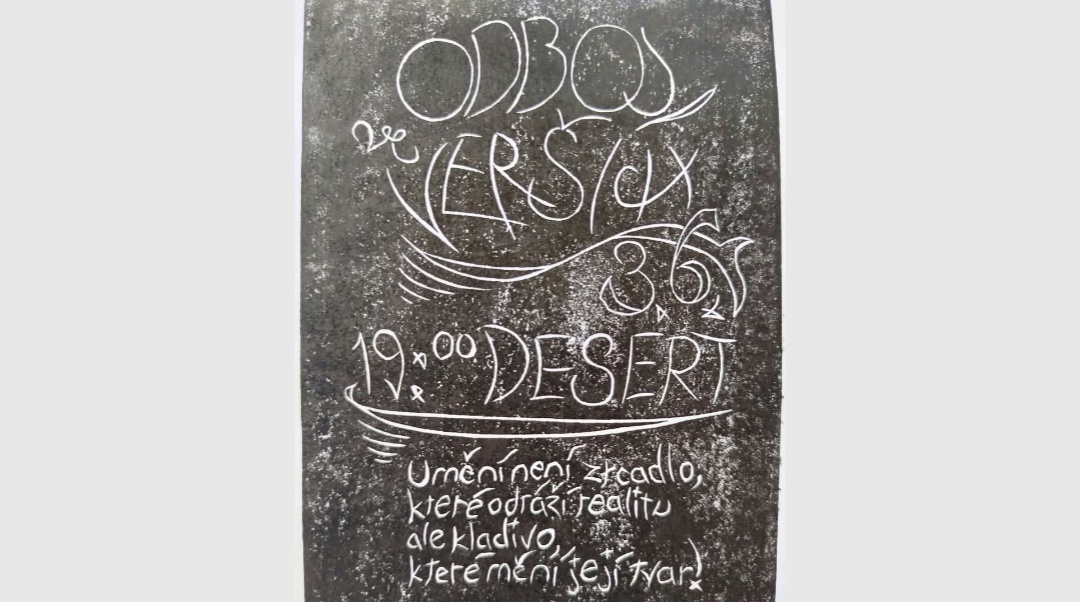 ODBOJ
ve
VERŠÍCH
3.6.
19:00 DESERT
Umění není zrcadlo,
které odráží realitu
ale kladivo,
které mění její tvar!